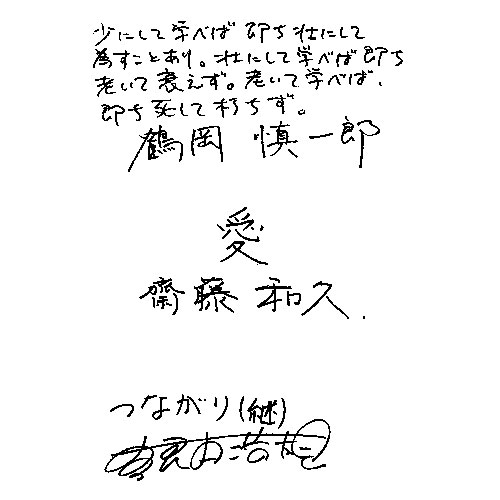 少にして学べば 即ち壮にして
為すことあり。壮にして学べば即ち
老いて衰えず。老いて学べば、
即ち死して朽ちず。
鶴岡 慎一郎
愛
齋藤 和久.
つながり(継)